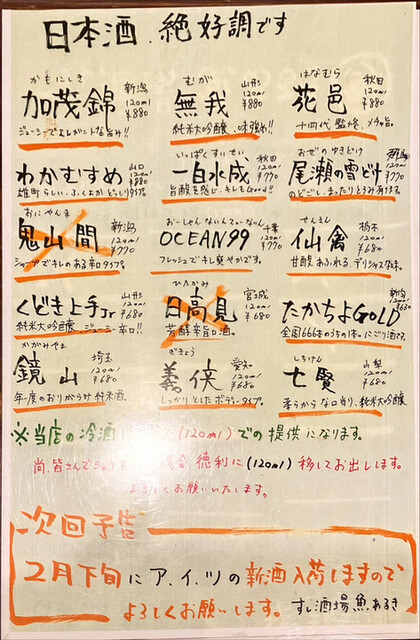 日本酒 絶好調です
かもにしき
加茂錦 新潟 120ml ¥880
ジューシーでエレガントな旨み!!
むが
無我 山形 120ml ¥880
純米大吟醸、味強め!!
はなむら
花邑 秋田 120ml ¥880
十四代監修、
わかむすめ 山口 120ml ¥770
雄町らしい、ふくよかどっしりタイプ。
いっぱくすいせい
一白水成 秋田 120ml ¥770
旨酸を感じ、キレもGood!!
おぜのゆきどけ
尾瀬の雪どけ 120ml ¥770
のどごし、まったりとろみ有ります。
おにやんま
鬼山間 新潟 120ml ¥770
シャープでキレのある辛口タイプ。
おーしゃんないんてぃーないん
OCEAN99 千葉 120ml ¥770
フレッシュでキレ爽やかです。
せんきん
仙禽 栃木 120ml ¥680
甘酸あふれる、デリシャスな味。
くどき上手Jr 山形 120ml ¥680
純米大吟醸、ジューシー辛口!!
ひたかみ
日高見 宮城 120ml ¥680
芳醇辛旨口酒。
たかちよGOLD 新潟 120ml ¥680
全国666本のうちの1本。にごり酒です。
かがみやま
鏡山 埼玉 120ml ¥680
年一度のおりがらけ 純米酒
ぎきょう
義侠 愛知 120ml ¥680
しっかりとしたボディータイプ。
しちけん
七賢 山梨 120ml ¥680
柔らかな口当り、純米大吟醸
※当店の冷酒は (120ml) での提供になります。
尚、皆さんで 場合、徳利に (120ml) 移してお出しします。
よろしくお願いいたします。
次回予告
2月下旬に ア、イ、ツの新酒入荷しますので
よろしくお願いします。 すし酒場 魚あるき